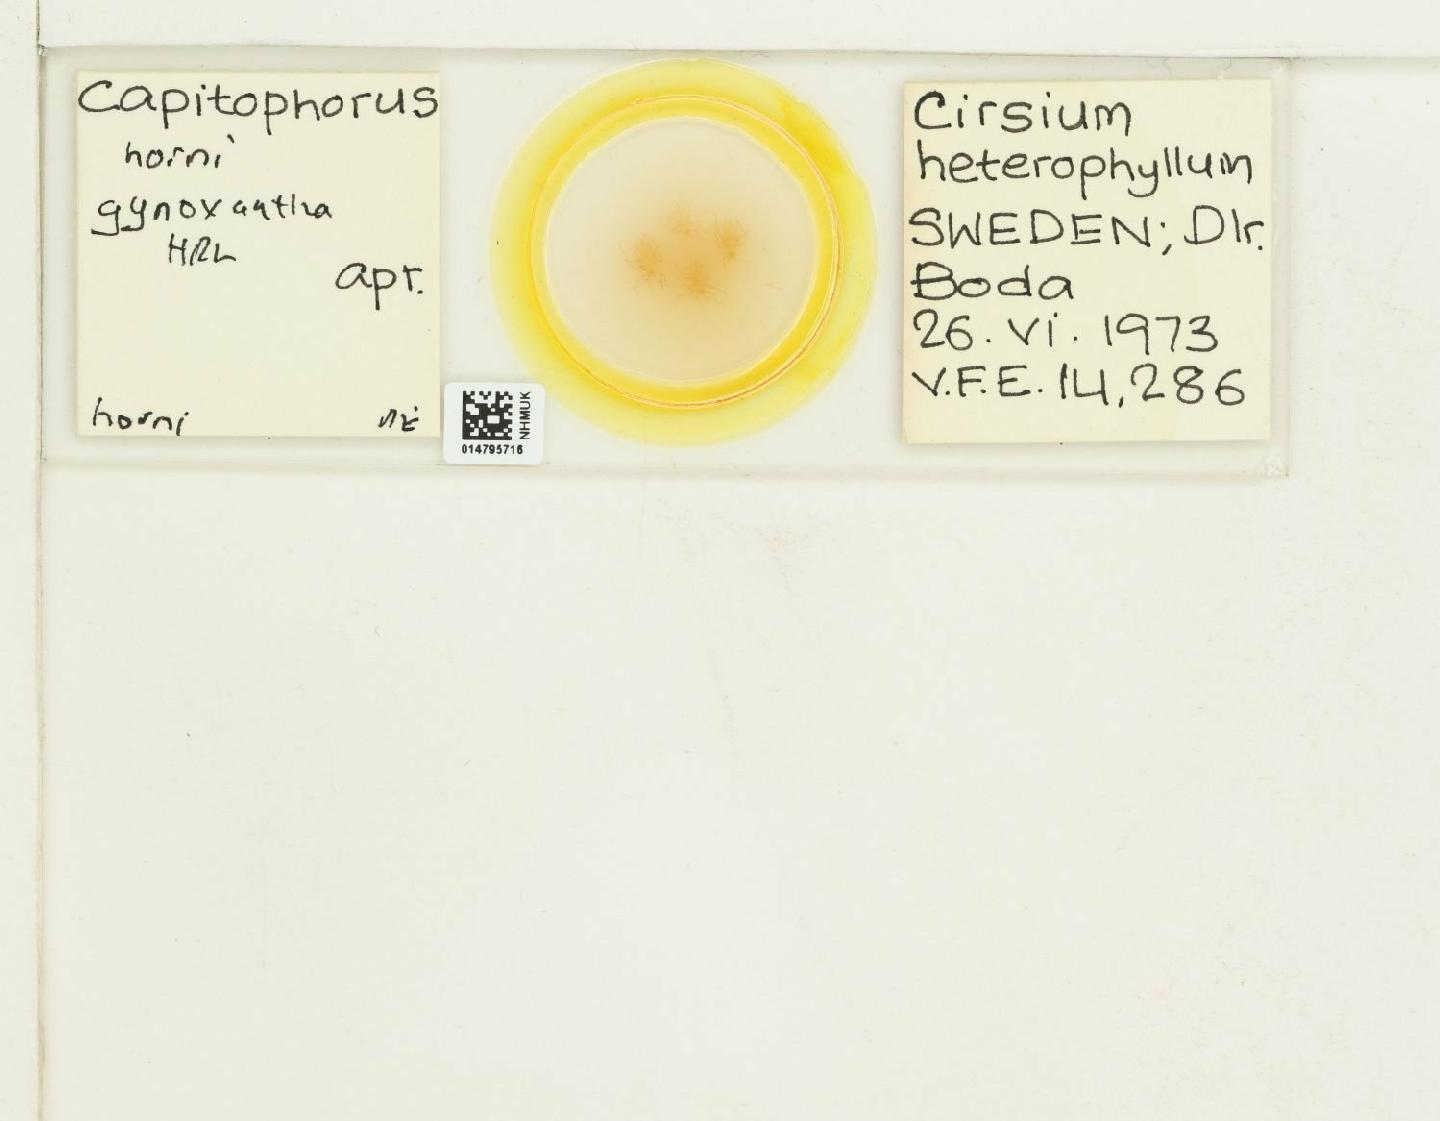 Capitophorus
horni
gynoxantha
HRL
apt.
horni
NHMUK
014795716
Cirsium
heterophyllum
SWEDEN; Dlr.
Boda
26. vi. 1973
V.F.E. 14,286